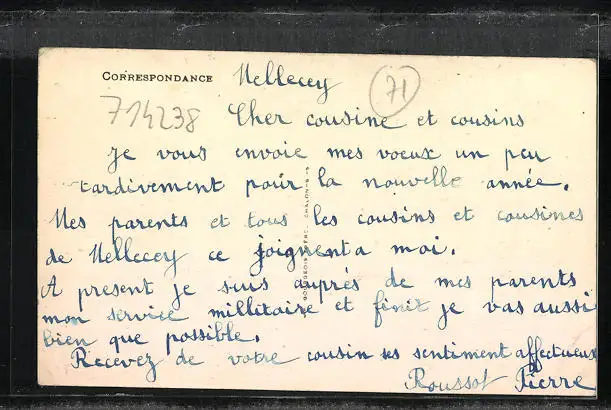 CORRESPONDANCE Mellecey 71
714238 Cher cousine et cousins
je vous envoie mes voeux un peu
tardivement pour la nouvelle année.
Mes parents et tous les cousins et cousines
de Mellecey ce joignent a moi.
A present je suis auprés de mes parents
mon service millitaire et finit je vas aussi
bien que possible.
Recevez de votre cousin ses sentiment affectueux
Roussot Pierre